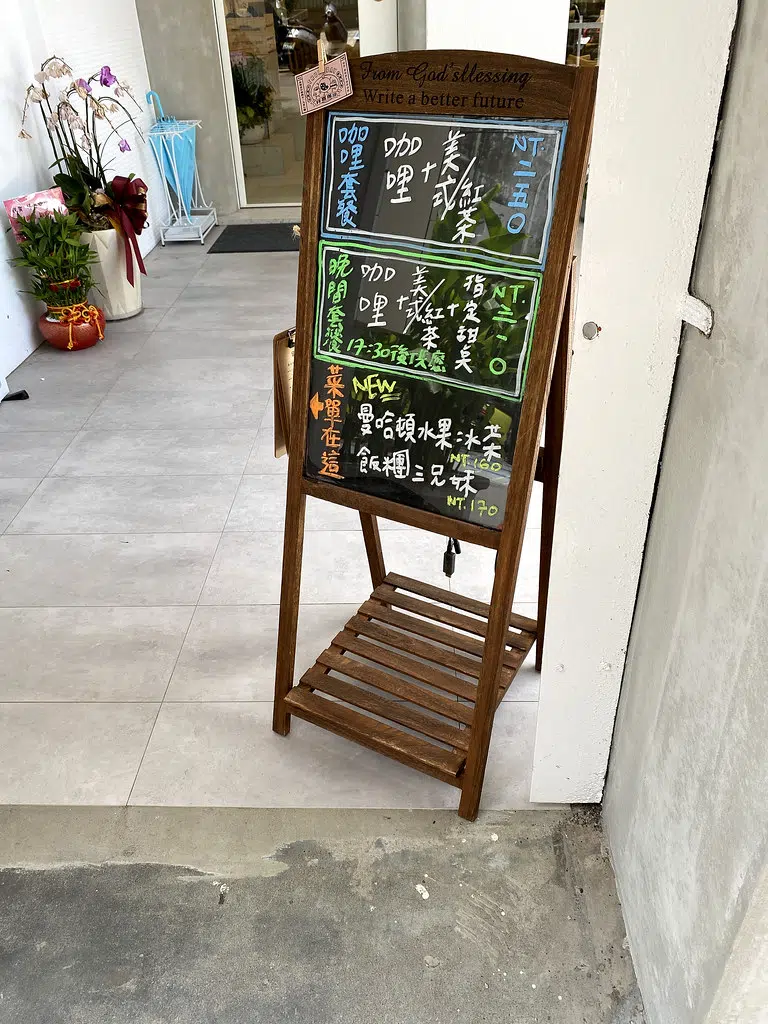 From God'sBlessing
Write a better future
咖哩套餐
咖哩+美式/紅茶
NT.二五〇
晚間套餐
咖哩+美式/紅茶+指定甜奌
NT.三一〇
17:30後供應
菜單在這
NEW
曼哈頓水果冰茶
NT.160
飯糰三兄妹
NT.170